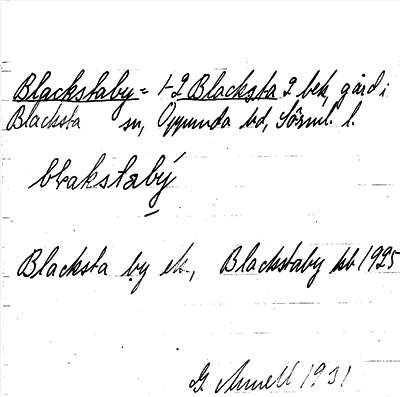 Blackstaby = 1-2 Blacksta 2 bek, gård i
Blacksta sn, Oppunda hd, Sörml. l.
blakstabý
Blacksta by ek, Blackstaby kb 1925
G 1931